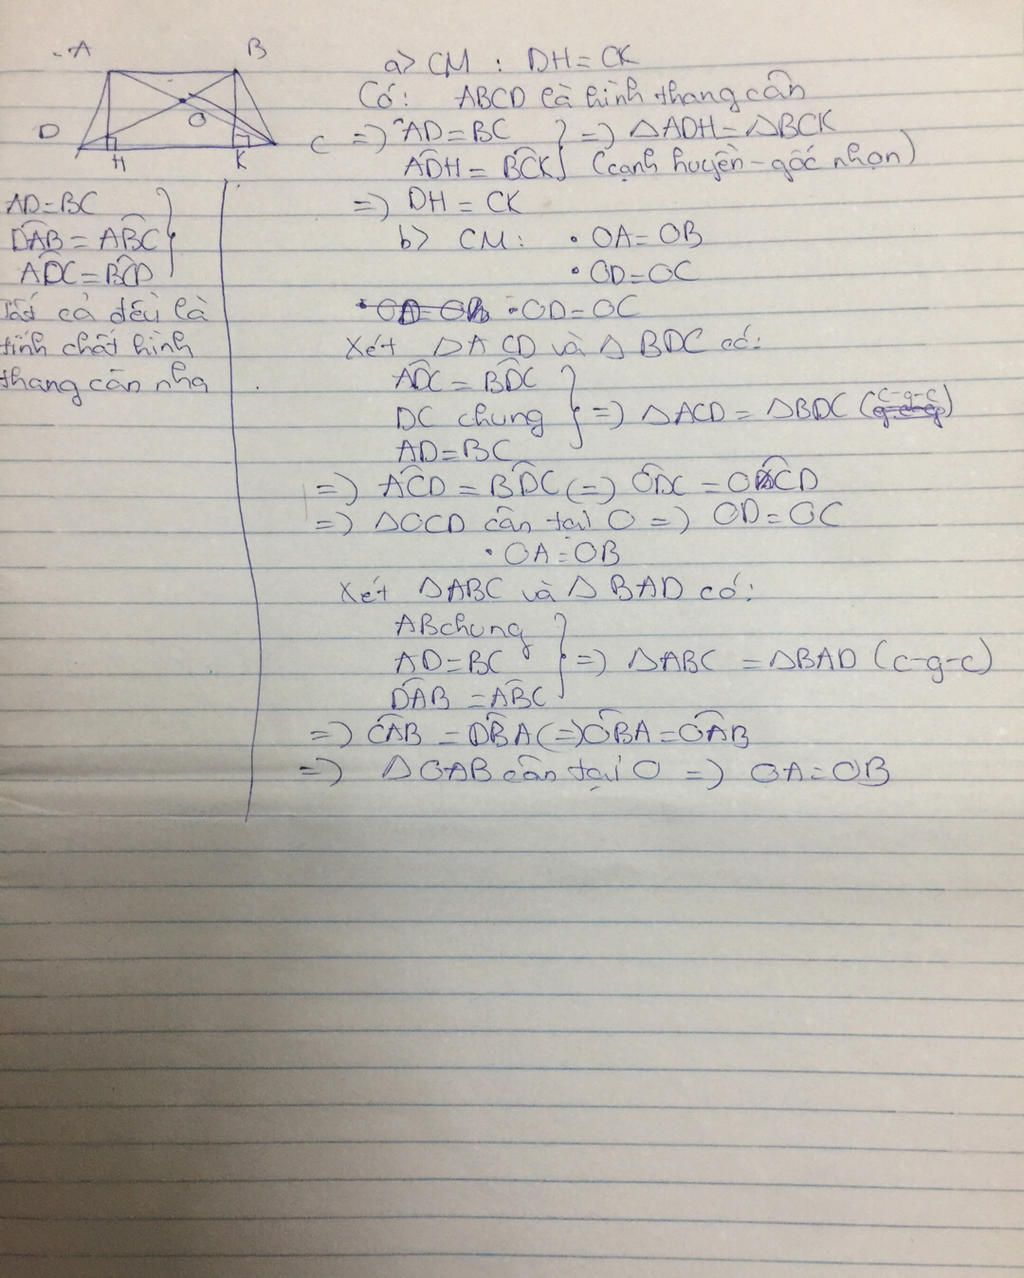 A B
D O C
H K
AD=BC
DAB = ABC
ADC = BCD
Tất cả đều là
tính chất hình
thang cân nha
a> CM : DH = CK
Có: ABCD là hình thang cân
=> AD = BC } => △ADH = △BCK
ADH = BCK (cạnh huyền - góc nhọn)
=> DH = CK
b> CM: • OA = OB
• OD = OC
• OD = OC
Xét △ACD và △BDC có:
ADC = BDC
DC chung } => △ACD = △BDC (c-g-c)
AD = BC
=> ACD = BDC (=) ODC = OCD
=> △OCD cân tại O => OD = OC
• OA = OB
Xét △ABC và △BAD có:
AB chung
AD = BC } => △ABC = △BAD (c-g-c)
DAB = ABC
=> CAB = DBA (=> OBA = OAB
=> △OAB cân tại O => OA = OB